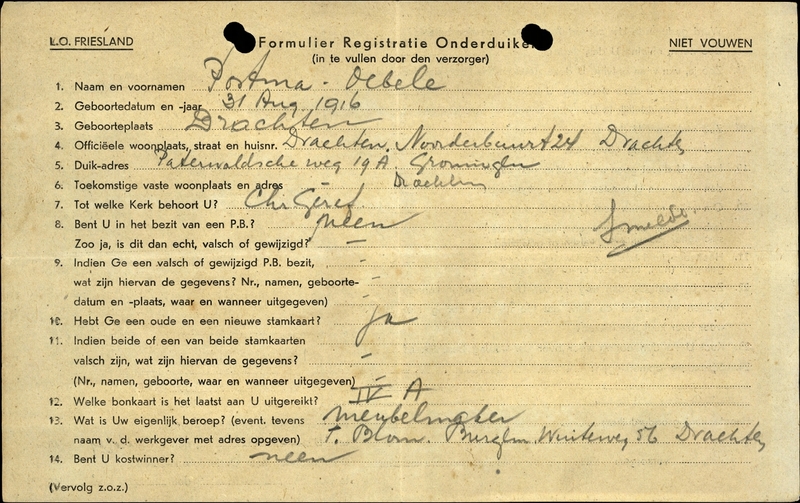 L.O. FRIESLAND
Formulier Registratie Onderduike
NIET VOUWEN
(in te vullen door den verzorger)
1. Naam en voornamen Postma - Oebele
2. Geboortedatum en -jaar 31 Aug 1916
3. Geboorteplaats Drachten
4. Officiëele woonplaats, straat en huisnr. Drachten, Noorderbuurt 24 Drachten
5. Duik-adres Paterwoldsche weg 19 A. Groningen
6. Toekomstige vaste woonplaats en adres Drachten
7. Tot welke Kerk behoort U? Chr. Geref.
8. Bent U in het bezit van een P.B.? neen
Smelde
Zoo ja, is dit dan echt, valsch of gewijzigd? —
9. Indien Ge een valsch of gewijzigd P.B. bezit, -
wat zijn hiervan de gegevens? Nr., namen, geboorte- -
datum en -plaats, waar en wanneer uitgegeven) -
10. Hebt Ge een oude en een nieuwe stamkaart? ja
11. Indien beide of een van beide stamkaarten
valsch zijn, wat zijn hiervan de gegevens? -
(Nr., namen, geboorte, waar en wanneer uitgegeven) -
12. Welke bonkaart is het laatst aan U uitgereikt? IV A
13. Wat is Uw eigenlijk beroep? (event. tevens meubelmaker
naam v. d. werkgever met adres opgeven) T. Blom. Burgm. Wuiteweg 56 Drachten
14. Bent U kostwinner? neen
(Vervolg z.o.z.)